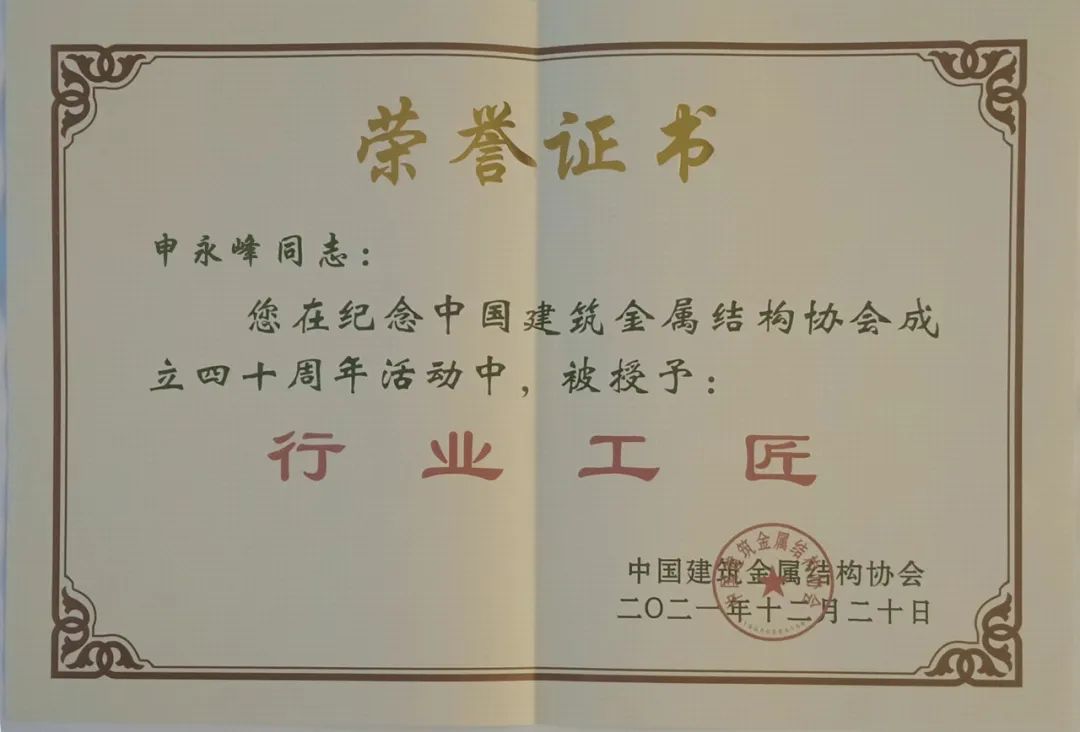 荣誉证书
申永峰同志：
您在纪念中国建筑金属结构协会成
立四十周年活动中，被授予：
行业工匠
中国建筑金属结构协会
二〇二一年十二月二十日
中国建筑金属结构协会